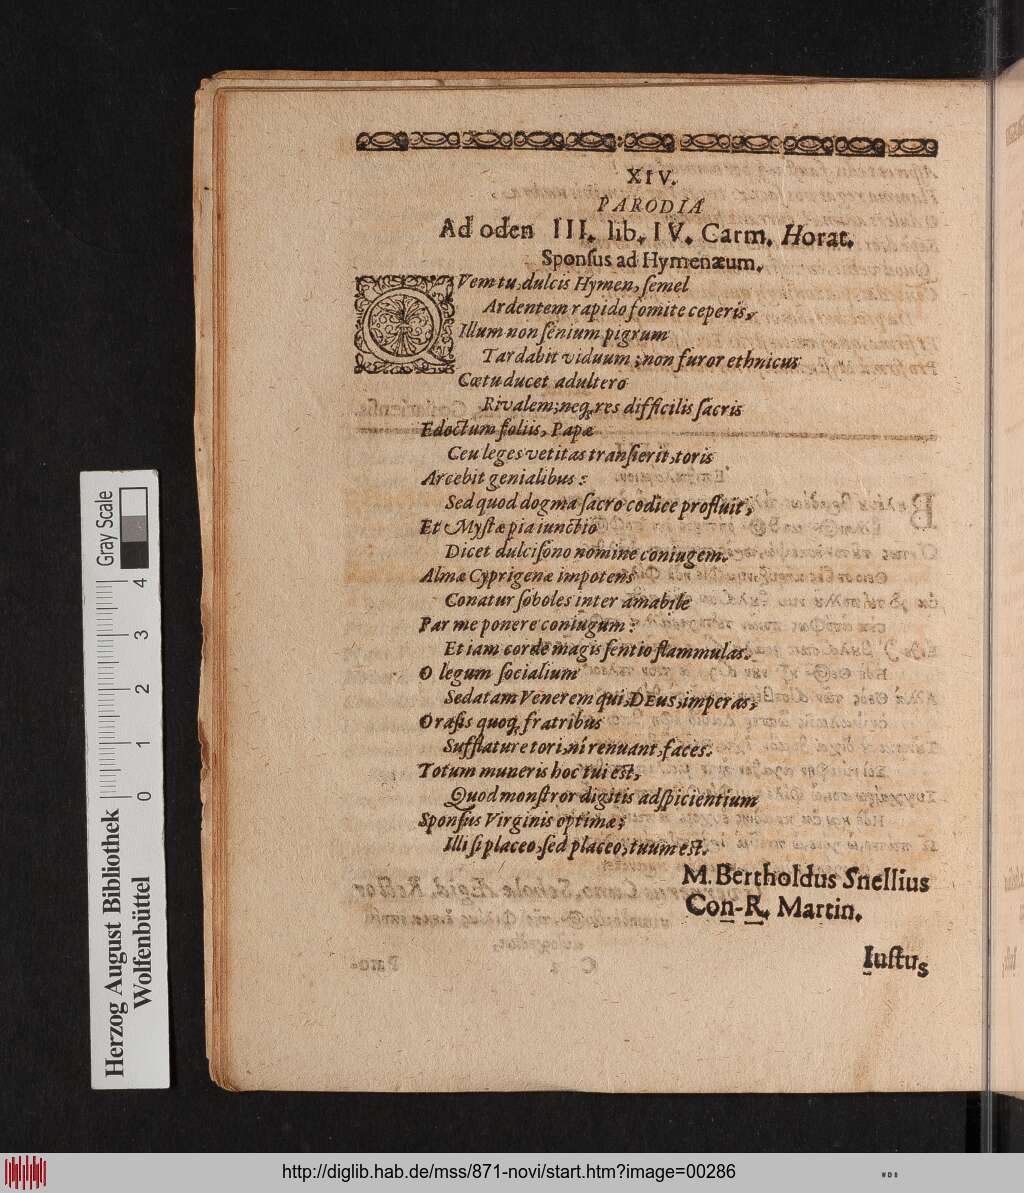 XIV.
PARODIA
Ad oden III. lib. IV. Carm. Horat.
Sponſus ad Hymenæum.
QVem tu, dulcis Hymen, ſemel
Ardentem rapido fomite ceperis,
Illum non ſenium pigrum
Tardabit viduum; non furor ethnicus
Cœtu ducet adultero
Rivalem; neq, res difficilis ſacris
Edoctum foliis, Papæ
Ceu leges vetitas tranſierit, toris
Arcebit genialibus:
Sed quod dogma ſacro codice profluit,
Et Myſtæ pia iunctio
Dicet dulciſono nomine coniugem.
Almæ Cyprigenæ impotens
Conatur ſoboles inter amabile
Par me ponere coniugum:
Et iam corde magis ſentio flammulas.
O legum ſocialium
Sedatam Venerem qui, DEus, imperas,
Oraſis quoq, fratribus
Sufflature tori, ni renuant, faces.
Totum muneris hoc tui eſt,
Quod monſtror digitis adſpicientium
Sponſus Virginis optimæ;
Illi ſi placeo, ſed placeo, tuum eſt.
M. Bertholdus Snellius
Con-R. Martin.
Iuſtus
Gray Scale
4
3
2
1
0
Herzog August Bibliothek
Wolfenbüttel
http://diglib.hab.de/mss/871-novi/start.htm?image=00286